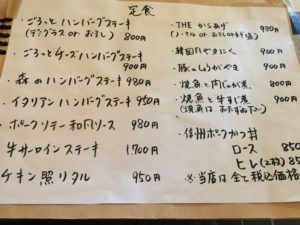 定食
・ごろっとハンバーグステーキ
(デミグラス or おろし) 800円
・ごろっとチーズハンバーグステーキ
900円
・森のハンバーグステーキ 980円
・イタリアンハンバーグステーキ 950円
・ポークソテー和風ソース 980円
・牛サーロインステーキ 1,700円
チキン照リタル 950円
・THE からあげ 980円
(ノーマル or おろしポン酢)
・韓国風やきにく 900円
・豚のしょうがやき 900円
・焼魚と肉じゃが煮 800円
・焼魚と牛すじ煮 900円
(焼魚は、おたずね下さい)
・信州ポークかつ丼
ロース 850
ヒレ(2枚) 85
※当店は全て税込価格